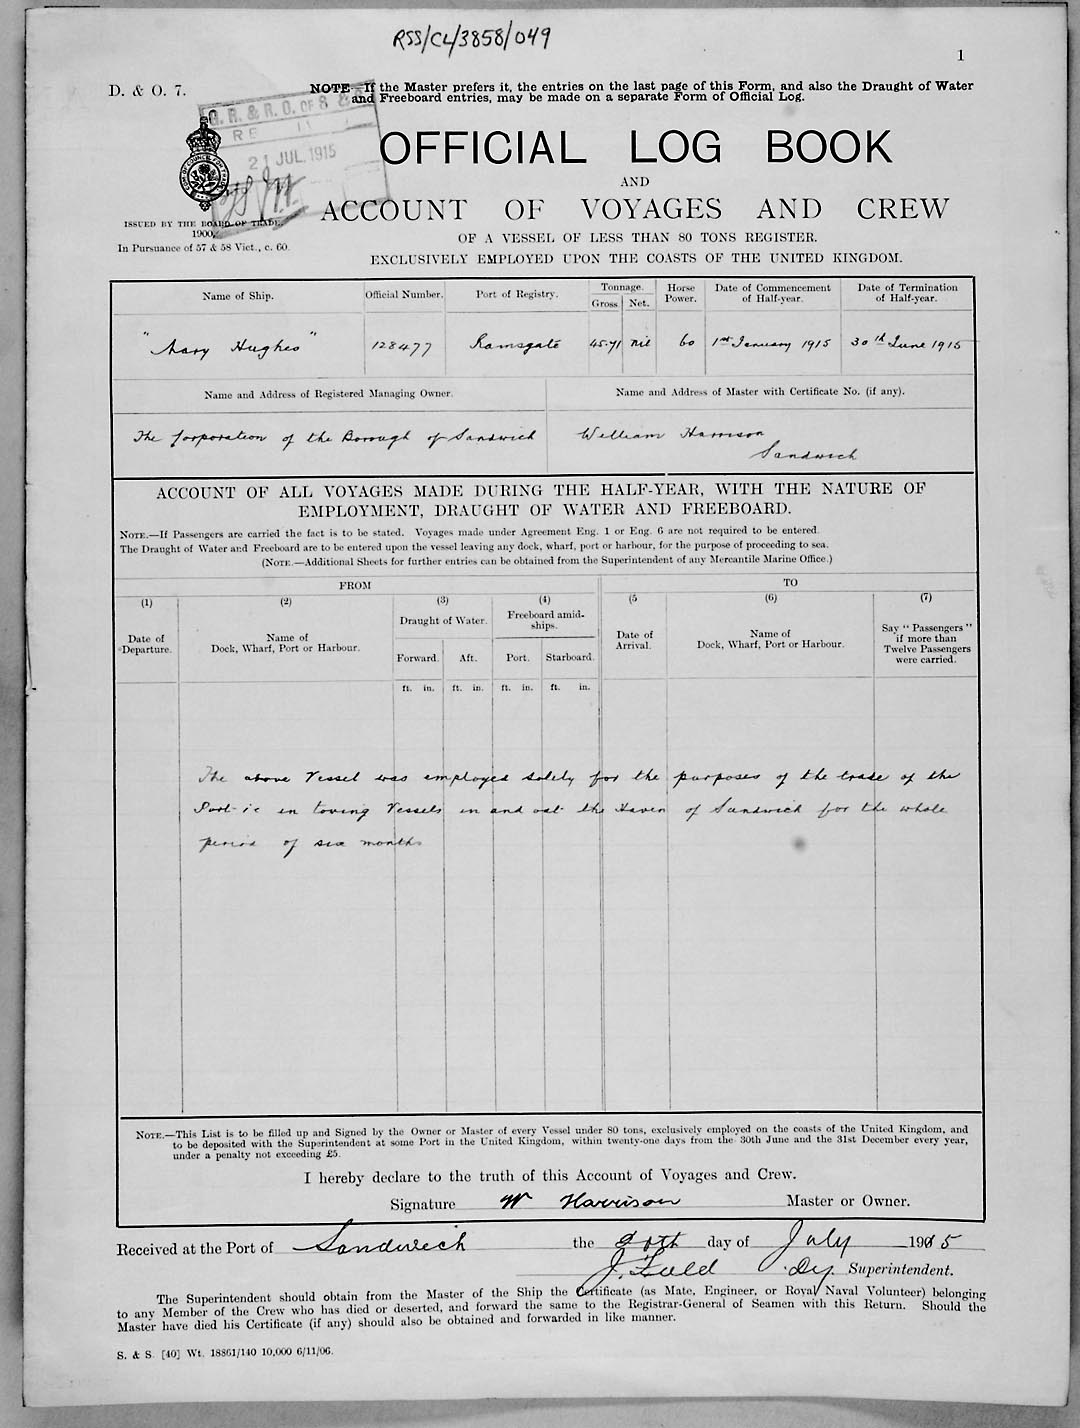 RSS/CL/3858/049
1
D. & O. 7.
NOTE—If the Master prefers it, the entries on the last page of this Form, and also the Draught of Water
and Freeboard entries, may be made on a separate Form of Official Log.
G. R. & R. O. OF S &
RE
21 JUL. 1915
OFFICIAL LOG BOOK
AND
ACCOUNT OF VOYAGES AND CREW
ISSUED BY THE BOARD OF TRADE,
1900,
In Pursuance of 57 & 58 Vict., c. 60.
OF A VESSEL OF LESS THAN 80 TONS REGISTER.
EXCLUSIVELY EMPLOYED UPON THE COASTS OF THE UNITED KINGDOM.
Name of Ship. Official Number. Port of Registry. Tonnage. Gross Net. Horse Power. Date of Commencement of Half-year. Date of Termination of Half-year.
"Mary Hughes" 128477 Ramsgate 45.71 nil 60 1st January 1915 30th June 1915
Name and Address of Registered Managing Owner. Name and Address of Master with Certificate No. (if any).
The Corporation of the Borough of Sandwich William Harrison
Sandwich
ACCOUNT OF ALL VOYAGES MADE DURING THE HALF-YEAR, WITH THE NATURE OF
EMPLOYMENT, DRAUGHT OF WATER AND FREEBOARD.
NOTE.—If Passengers are carried the fact is to be stated. Voyages made under Agreement Eng. 1 or Eng. 6 are not required to be entered.
The Draught of Water and Freeboard are to be entered upon the vessel leaving any dock, wharf, port or harbour, for the purpose of proceeding to sea.
(NOTE.—Additional Sheets for further entries can be obtained from the Superintendent of any Mercantile Marine Office.)
FROM TO
(1) (2) (3) (4) (5 (6) (7)
Date of Departure. Name of Dock, Wharf, Port or Harbour. Draught of Water. Freeboard amid-ships. Date of Arrival. Name of Dock, Wharf, Port or Harbour. Say "Passengers" if more than Twelve Passengers were carried.
Forward. Aft. Port. Starboard.
ft. in. ft. in. ft. in. ft. in.
The above Vessel was employed solely for the purposes of the trade of the
Port i.e in towing Vessels in and out the Haven of Sandwich for the whole
period of six months
NOTE.—This List is to be filled up and Signed by the Owner or Master of every Vessel under 80 tons, exclusively employed on the coasts of the United Kingdom, and
to be deposited with the Superintendent at some Port in the United Kingdom, within twenty-one days from the 30th June and the 31st December every year,
under a penalty not exceeding £5.
I hereby declare to the truth of this Account of Voyages and Crew.
Signature W Harrison Master or Owner.
Received at the Port of Sandwich the 20th day of July 1915
Dy. Superintendent.
The Superintendent should obtain from the Master of the Ship the Certificate (as Mate, Engineer, or Royal Naval Volunteer) belonging
to any Member of the Crew who has died or deserted, and forward the same to the Registrar-General of Seamen with this Return. Should the
Master have died his Certificate (if any) should also be obtained and forwarded in like manner.
S. & S. [40] Wt. 18861/140 10,000 6/11/06.